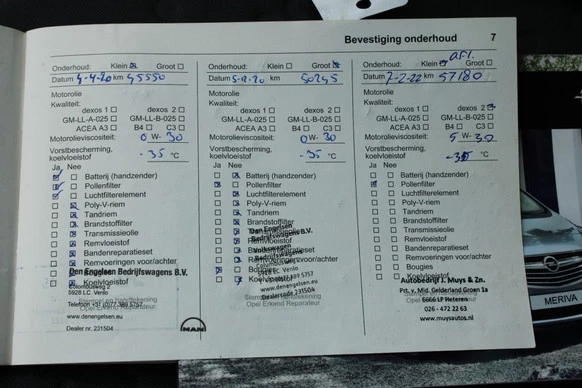 Bevestiging onderhoud 7
Onderhoud: Klein Groot
Datum 4-4-20 km 45550
Motorolie
Kwaliteit:
dexos 1 dexos 2
GM-LL-A-025 GM-LL-B-025
ACEA A3 B4 C3
Motorolieviscositeit: 0 W- 30
Vorstbescherming,
koelvloeistof -35 °C
Ja Nee
Batterij (handzender)
Pollenfilter
Luchtfilterelement
Poly-V-riem
Tandriem
Brandstoffilter
Transmissieolie
Remvloeistof
Bandenreparatieset
Remvoeringen voor/achter
Den Engelsen Bedrijfswagens B.V.
Koelvloeistof
5928 LC Venlo
Stempel en handtekening
Telefoon +31 (0)77 389 5757
Opel Erkend Reparateur
www.denengelsen.eu
Dealer nr. 231504
MAN
Onderhoud: Klein Groot
Datum km 50245
Motorolie
Kwaliteit:
dexos 1 dexos 2
GM-LL-A-025 GM-LL-B-025
ACEA A3 B4 C3
Motorolieviscositeit: 0 W- 30
Vorstbescherming,
koelvloeistof -35 °C
Ja Nee
Batterij (handzender)
Pollenfilter
Luchtfilterelement
Poly-V-riem
Tandriem
Brandstoffilter
Den Engelsen
Bedrijfswagens B.V.
Remvloeistof
Volkswagen
Bedrijfswagens
Remvoeringen voor/achter
Bougies
5928 LC Venlo
Koelvloeistof
www.denengelsen.eu
Dealercode 231504
Opel Erkend Reparateur
Onderhoud: Klein Groot
Datum 2-2-22 km 57180
Motorolie
Kwaliteit:
dexos 1 dexos 2
GM-LL-A-025 GM-LL-B-025
ACEA A3 B4 C3
Motorolieviscositeit: 5 W- 30
Vorstbescherming,
koelvloeistof -35 °C
Ja Nee
Batterij (handzender)
Pollenfilter
Luchtfilterelement
Poly-V-riem
Tandriem
Brandstoffilter
Transmissieolie
Remvloeistof
Bandenreparatieset
Remvoeringen voor/achter
Bougies
Koelvloeistof
Autobedrijf J. Muys & Zn.
Prt. v. Mid. Gelderland Groen 1a
6666 LP Heteren
026 - 472 22 63
www.muysautos.nl
MERIVA